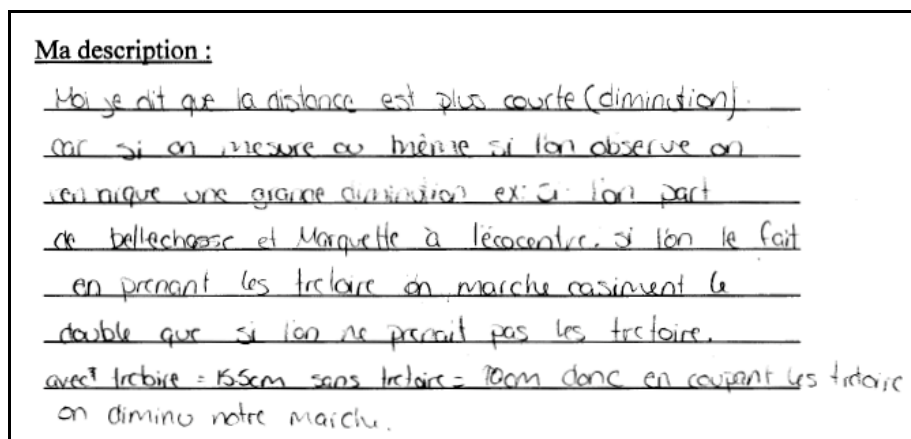 Ma description :
Moi je dit que la distance est plus courte (diminution).
car si on mesure ou même si l'on observe on
une grande diminution ex: si l'on part
de bellechasse et Marquette à l'écocentre. si l'on le fait
en prenant les trotoire on marche casiment le
double que si l'on ne prenait pas les trotoire.
avec trotoire = 15.5cm sans trotoire = 10cm donc en coupant les trotoire
on diminu notre marche.